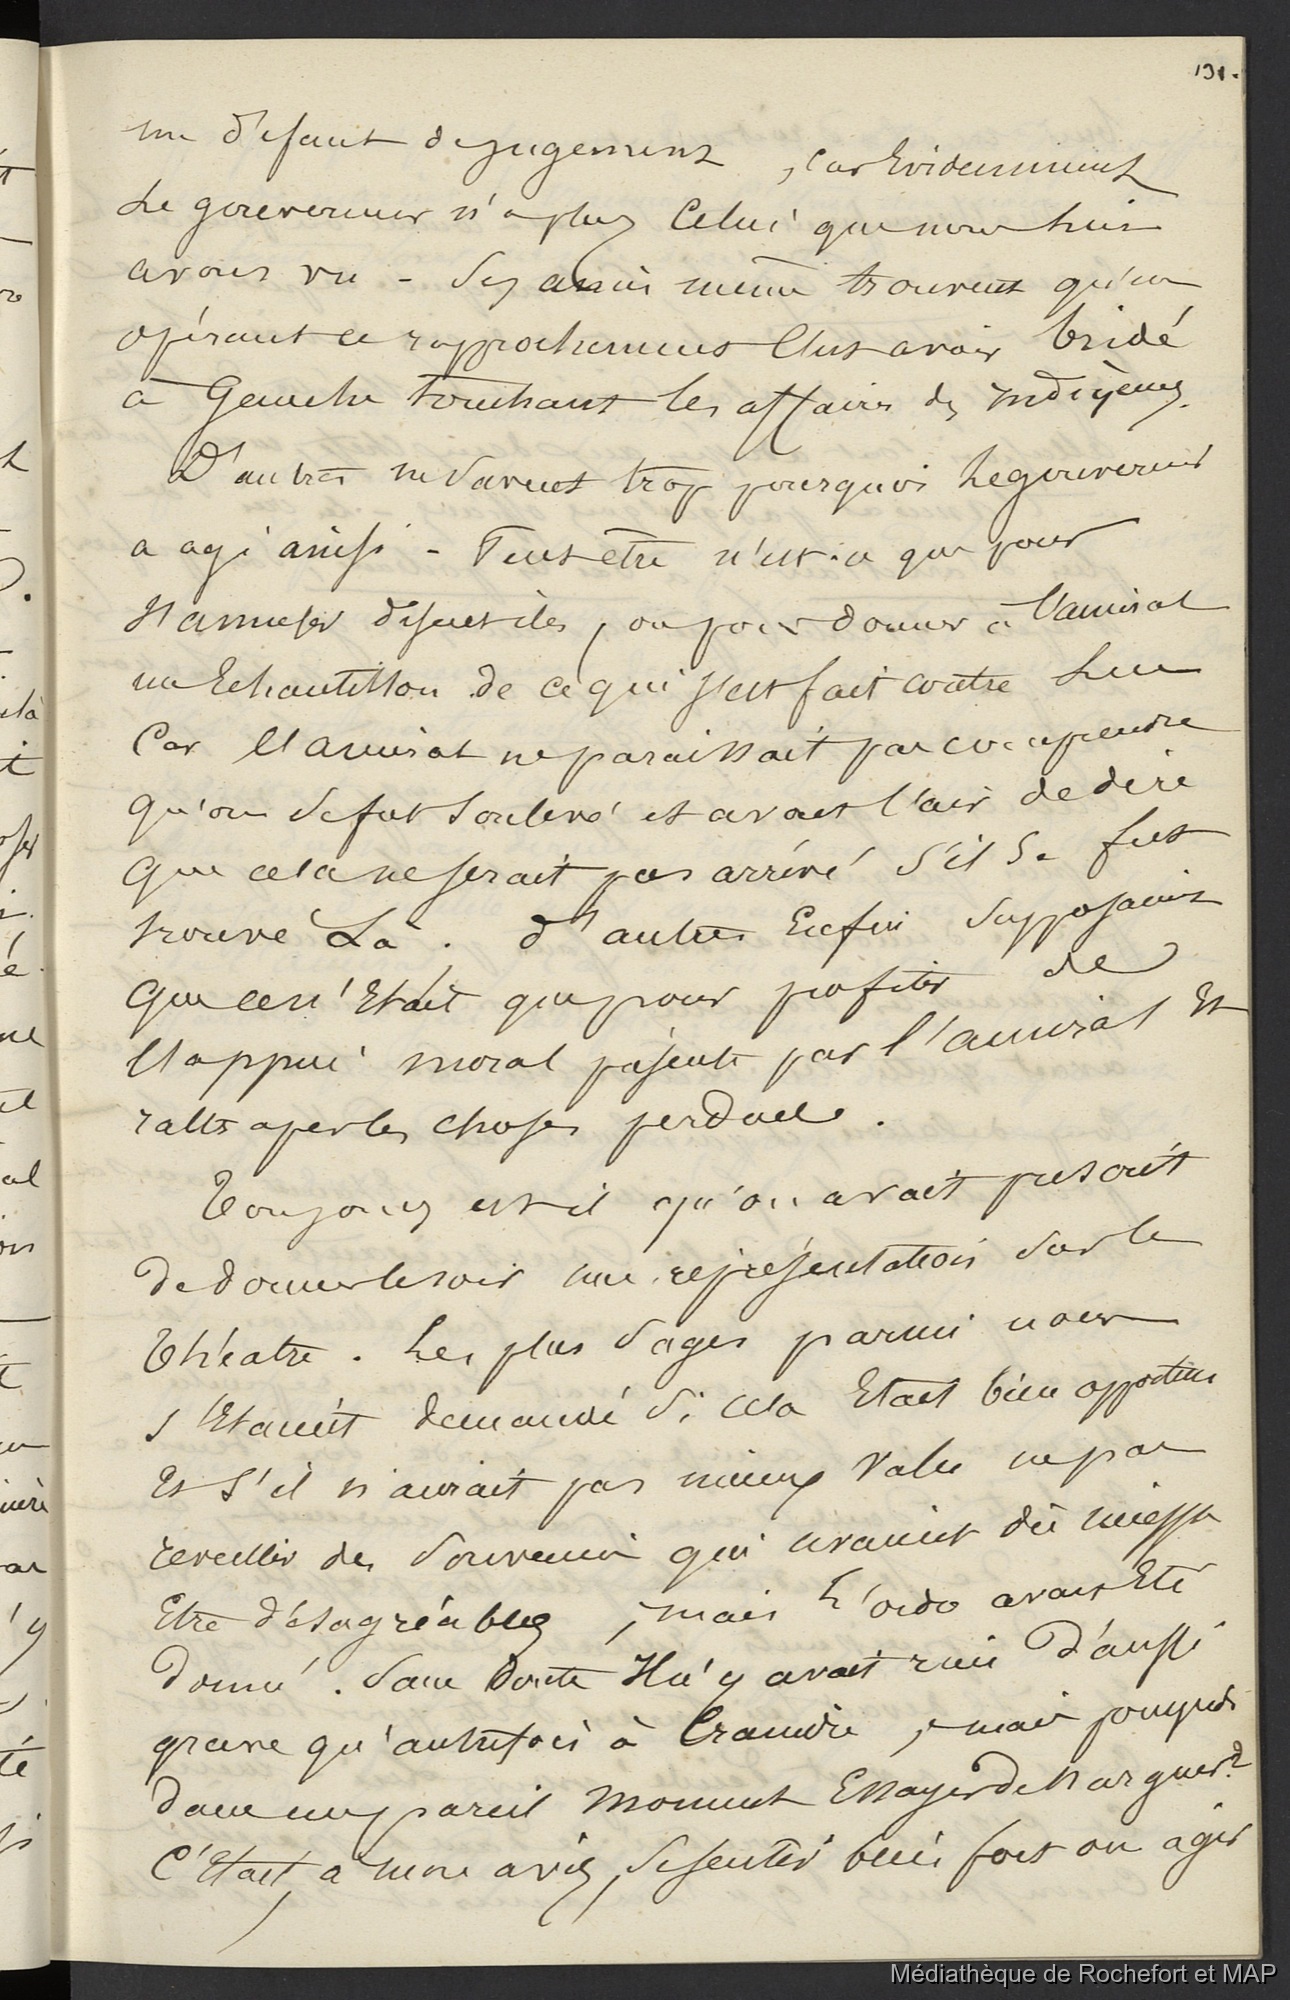 131.
un défaut de jugement, car Evidemment
Le gouverneur n'a plus Celui que nous lui
avons vu - Ses amis même trouvent qu'en
opérant ce rapprochement C'est avoir bridé
à Gauche touchant les affaires des indigènes.
D'autres ne savent trop pourquoi Le gouverneur
a agi ainsi - Peut être n'est-ce que pour
s'amuser disent-ils, ou pour donner à l'amiral
un Echantillon de ce qui s'est fait contre Lui
Car l'amiral ne paraissait pas comprendre
qu'on se fut soulevé et avait l'air de dire
que cela ne serait pas arrivé s'il se fut
trouvé Là. d'autres Enfin supposaient
que ce n'Etait que pour profiter de
l'appui moral présenté par l'amiral Et
rattraper les choses perdues.
Toujours est-il qu'on avait prescrit
de donner le soir une représentation sur le
théatre. Les plus sages parmi nous
s'Etaient demandé si cela Etait bien opportun
Et s'il n'aurait pas mieux valu ne pas
reveiller des souvenirs qui avaient dû
Etre désagréables, mais L'ordre avait Eté
donné. sans doute Il n'y avait rien d'aussi
grave qu'autrefois à , mais pourquoi
dans un pareil moment Essayer de narguer?
C'Etait, à mon avis, se sentir bien fort ou agir
Médiathèque de Rochefort et MAP